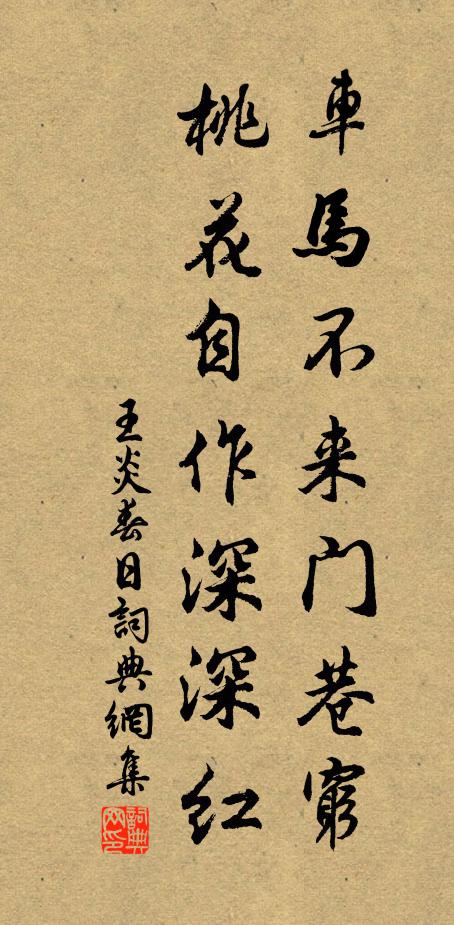 車馬不来门巷窮
桃花自作深深紅
王炎春日詞典網集
詞典网印